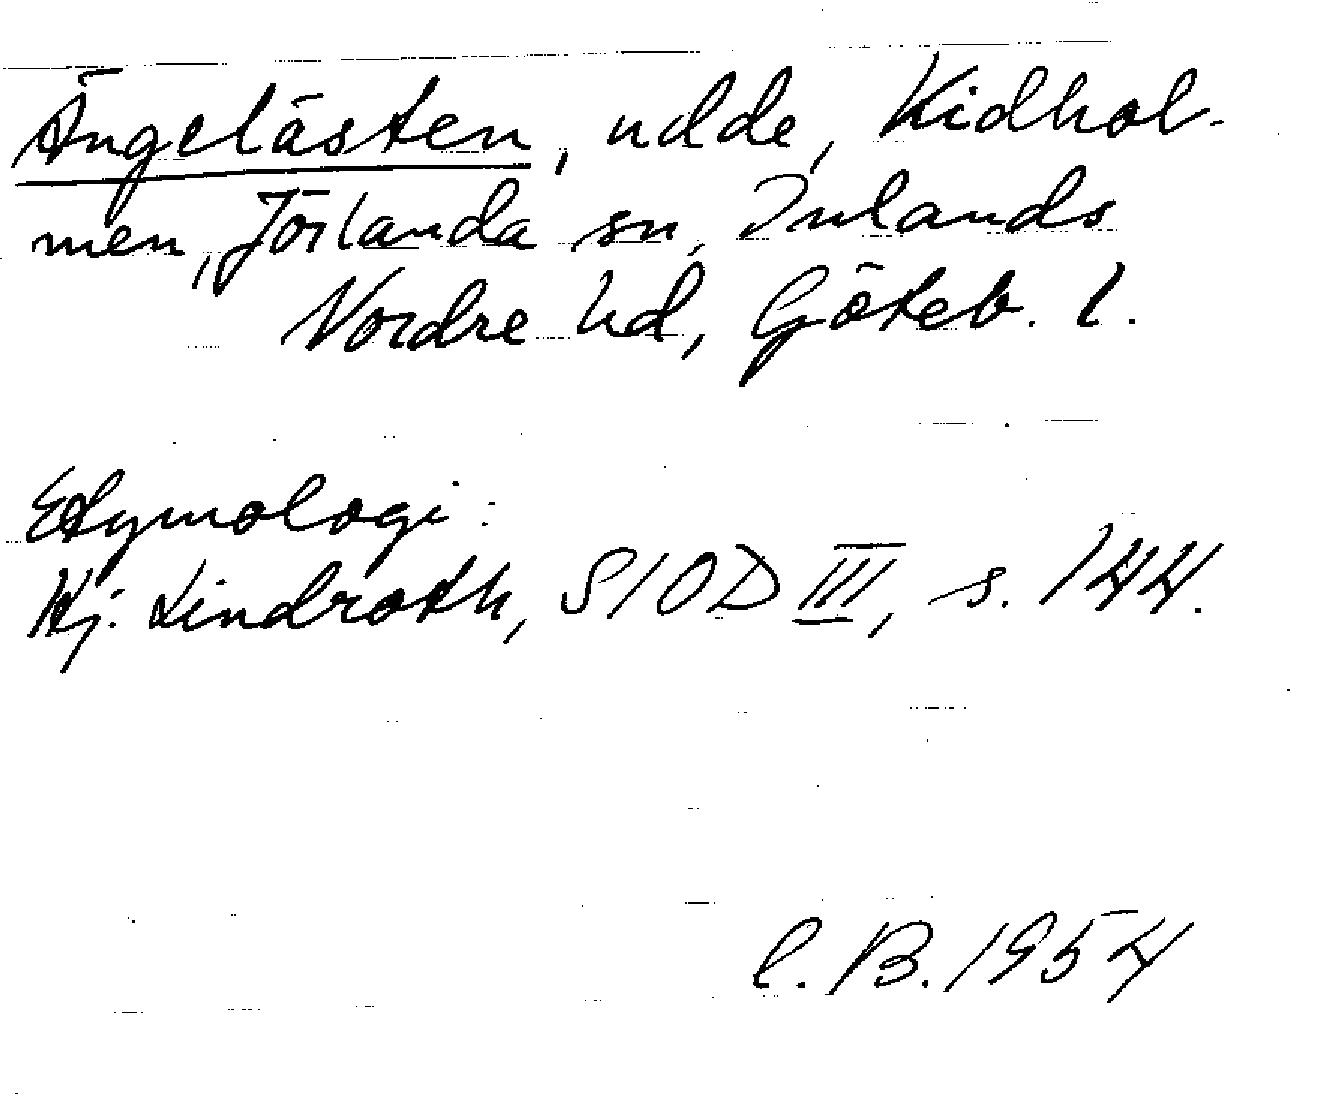 Ängelästen, udde, Kidhol-
men, Jörlanda sn, Inlands
Nordre hd, Göteb. l.
Etymologi:
Hj. Lindroth, SIOD III, s. 144.
C. B. 1954